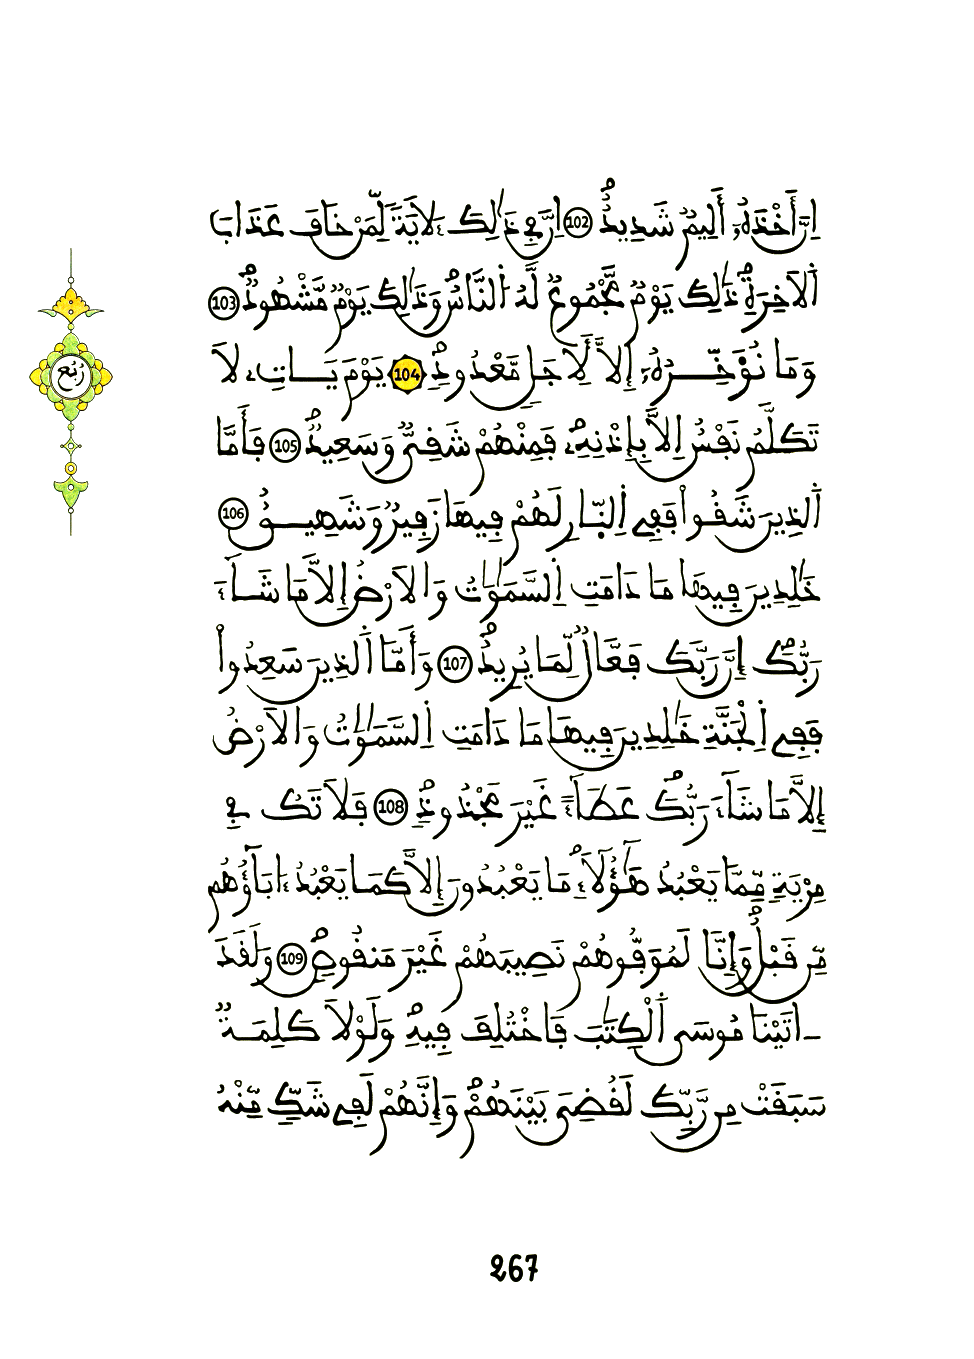 إِنَّ أَخْذَهُۥٓ أَلِيمٞ شَدِيدٌۖ 102 اِنَّ فِے ذَٰلِكَ ءَلَايَةٗ لِّمَنْ خَافَ عَذَابَ
اَ۬لَاخِرَةِۖ ذَٰلِكَ يَوْمٞ مَّجْمُوعٞ لَّهُ اُ۬لنَّاسُۖ وَذَٰلِكَ يَوْمٞ مَّشْهُودٞۖ 103
وَمَا نُؤَخِّرُهُۥٓ إِلَّا لِأَجَلٖ مَّعْدُودٖۖ 104 يَوْمَ يَاتِۦ لَا
تَكَلَّمُ نَفْسٌ اِلَّا بِإِذْنِهِۦۖ فَمِنْهُمْ شَقِيّٞ وَسَعِيدٞۖ 105 فَأَمَّا
اَ۬لذِينَ شَقُواْ فَفِے اِ۬لنّ۪ارِ لَهُمْ فِيهَا زَفِيرٞ وَشَهِيقٌ 106
خَٰلِدِينَ فِيهَا مَا دَامَتِ اِ۬لسَّمَٰوَٰتُ وَالَارْضُ إِلَّا مَا شَآءَ
رَبُّكَۖ إِنَّ رَبَّكَ فَعَّالٞ لِّمَا يُرِيدُۖ 107 وَأَمَّا اَ۬لذِينَ سَعِدُواْ
فَفِے اِ۬لْجَنَّةِ خَٰلِدِينَ فِيهَا مَا دَامَتِ اِ۬لسَّمَٰوَٰتُ وَالَارْضُ
إِلَّا مَا شَآءَ رَبُّكَۖ عَطَآءً غَيْرَ مَجْذُوذٖۖ 108 فَلَا تَكُ فِے
مِرْيَةٖ مِّمَّا يَعْبُدُ هَٰٓؤُلَآءِۖ مَا يَعْبُدُونَ إِلَّا كَمَا يَعْبُدُ ءَابَآؤُهُم
مِّن قَبْلُۖ وَإِنَّا لَمُوَفُّوهُمْ نَصِيبَهُمْ غَيْرَ مَنقُوصٖۖ 109 وَلَقَدَ
ـ اتَيْنَا مُوسَى اَ۬لْكِتَٰبَ فَاخْتُلِفَ فِيهِۖ وَلَوْلَا كَلِمَةٞ
سَبَقَتْ مِن رَّبِّكَ لَقُضِيَ بَيْنَهُمْۖ وَإِنَّهُمْ لَفِے شَكّٖ مِّنْهُ
رُبُع
267